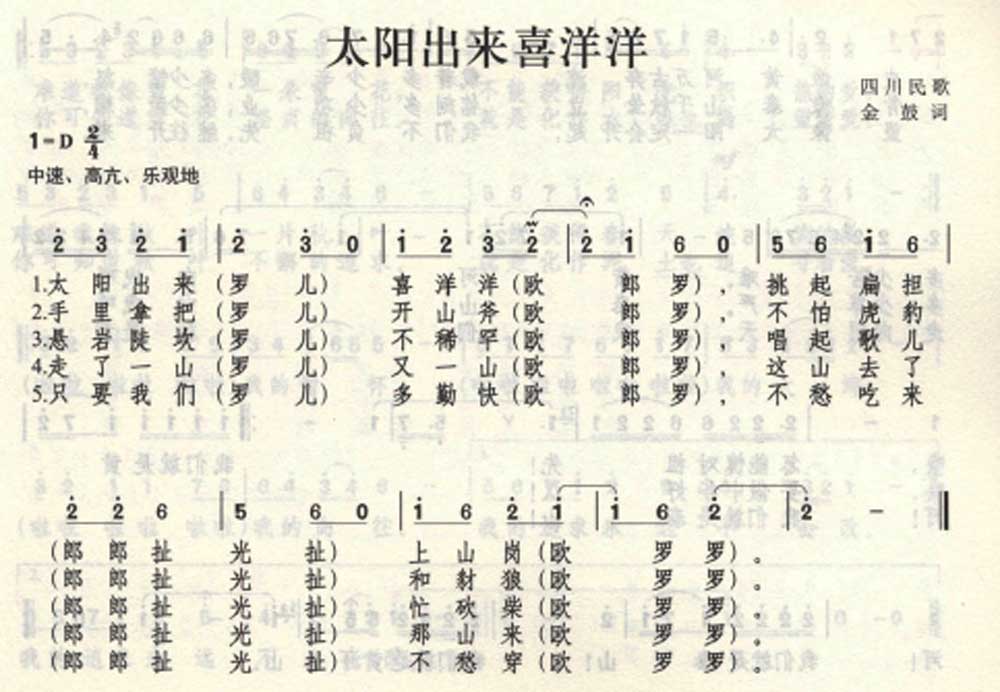 太阳出来喜洋洋
四川民歌
金鼓词
1=D 2/4
中速、高亢、乐观地
2 3 2 1 | 2 3 0 | 1 2 3 2 | 2 1 6 0 | 5 6 1 6 |
1.太阳出来(罗儿) 喜洋洋(欧郎罗), 挑起扁担
2.手里拿把(罗儿) 开山斧(欧郎罗), 不怕虎豹
3.悬岩陡坎(罗儿) 不稀罕(欧郎罗), 唱起歌儿
4.走了一山(罗儿) 又一山(欧郎罗), 这山去了
5.只要我们(罗儿) 多勤快(欧郎罗), 不愁吃来
2 2 6 | 5 6 0 | 1 6 2 1 | 1 6 2 | 2 - ‖
(郎郎扯光扯) 上山岗(欧罗罗)。
(郎郎扯光扯) 和豺狼(欧罗罗)。
(郎郎扯光扯) 忙砍柴(欧罗罗)。
(郎郎扯光扯) 那山来(欧罗罗)。
(郎郎扯光扯) 不愁穿(欧罗罗)。